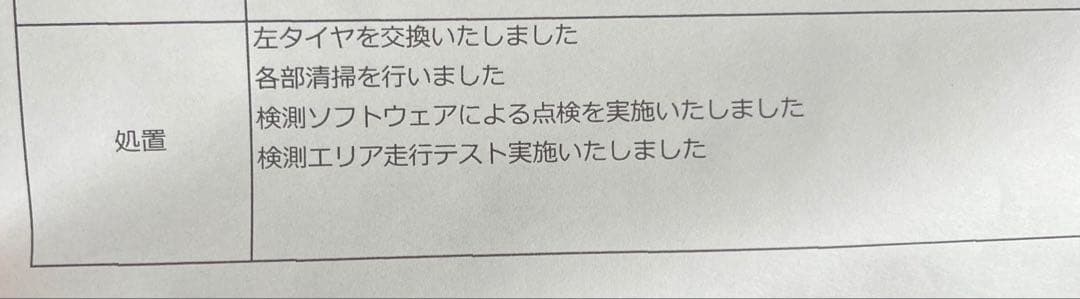 処置
左タイヤを交換いたしました
各部清掃を行いました
検測ソフトウェアによる点検を実施いたしました
検測エリア走行テスト実施いたしました